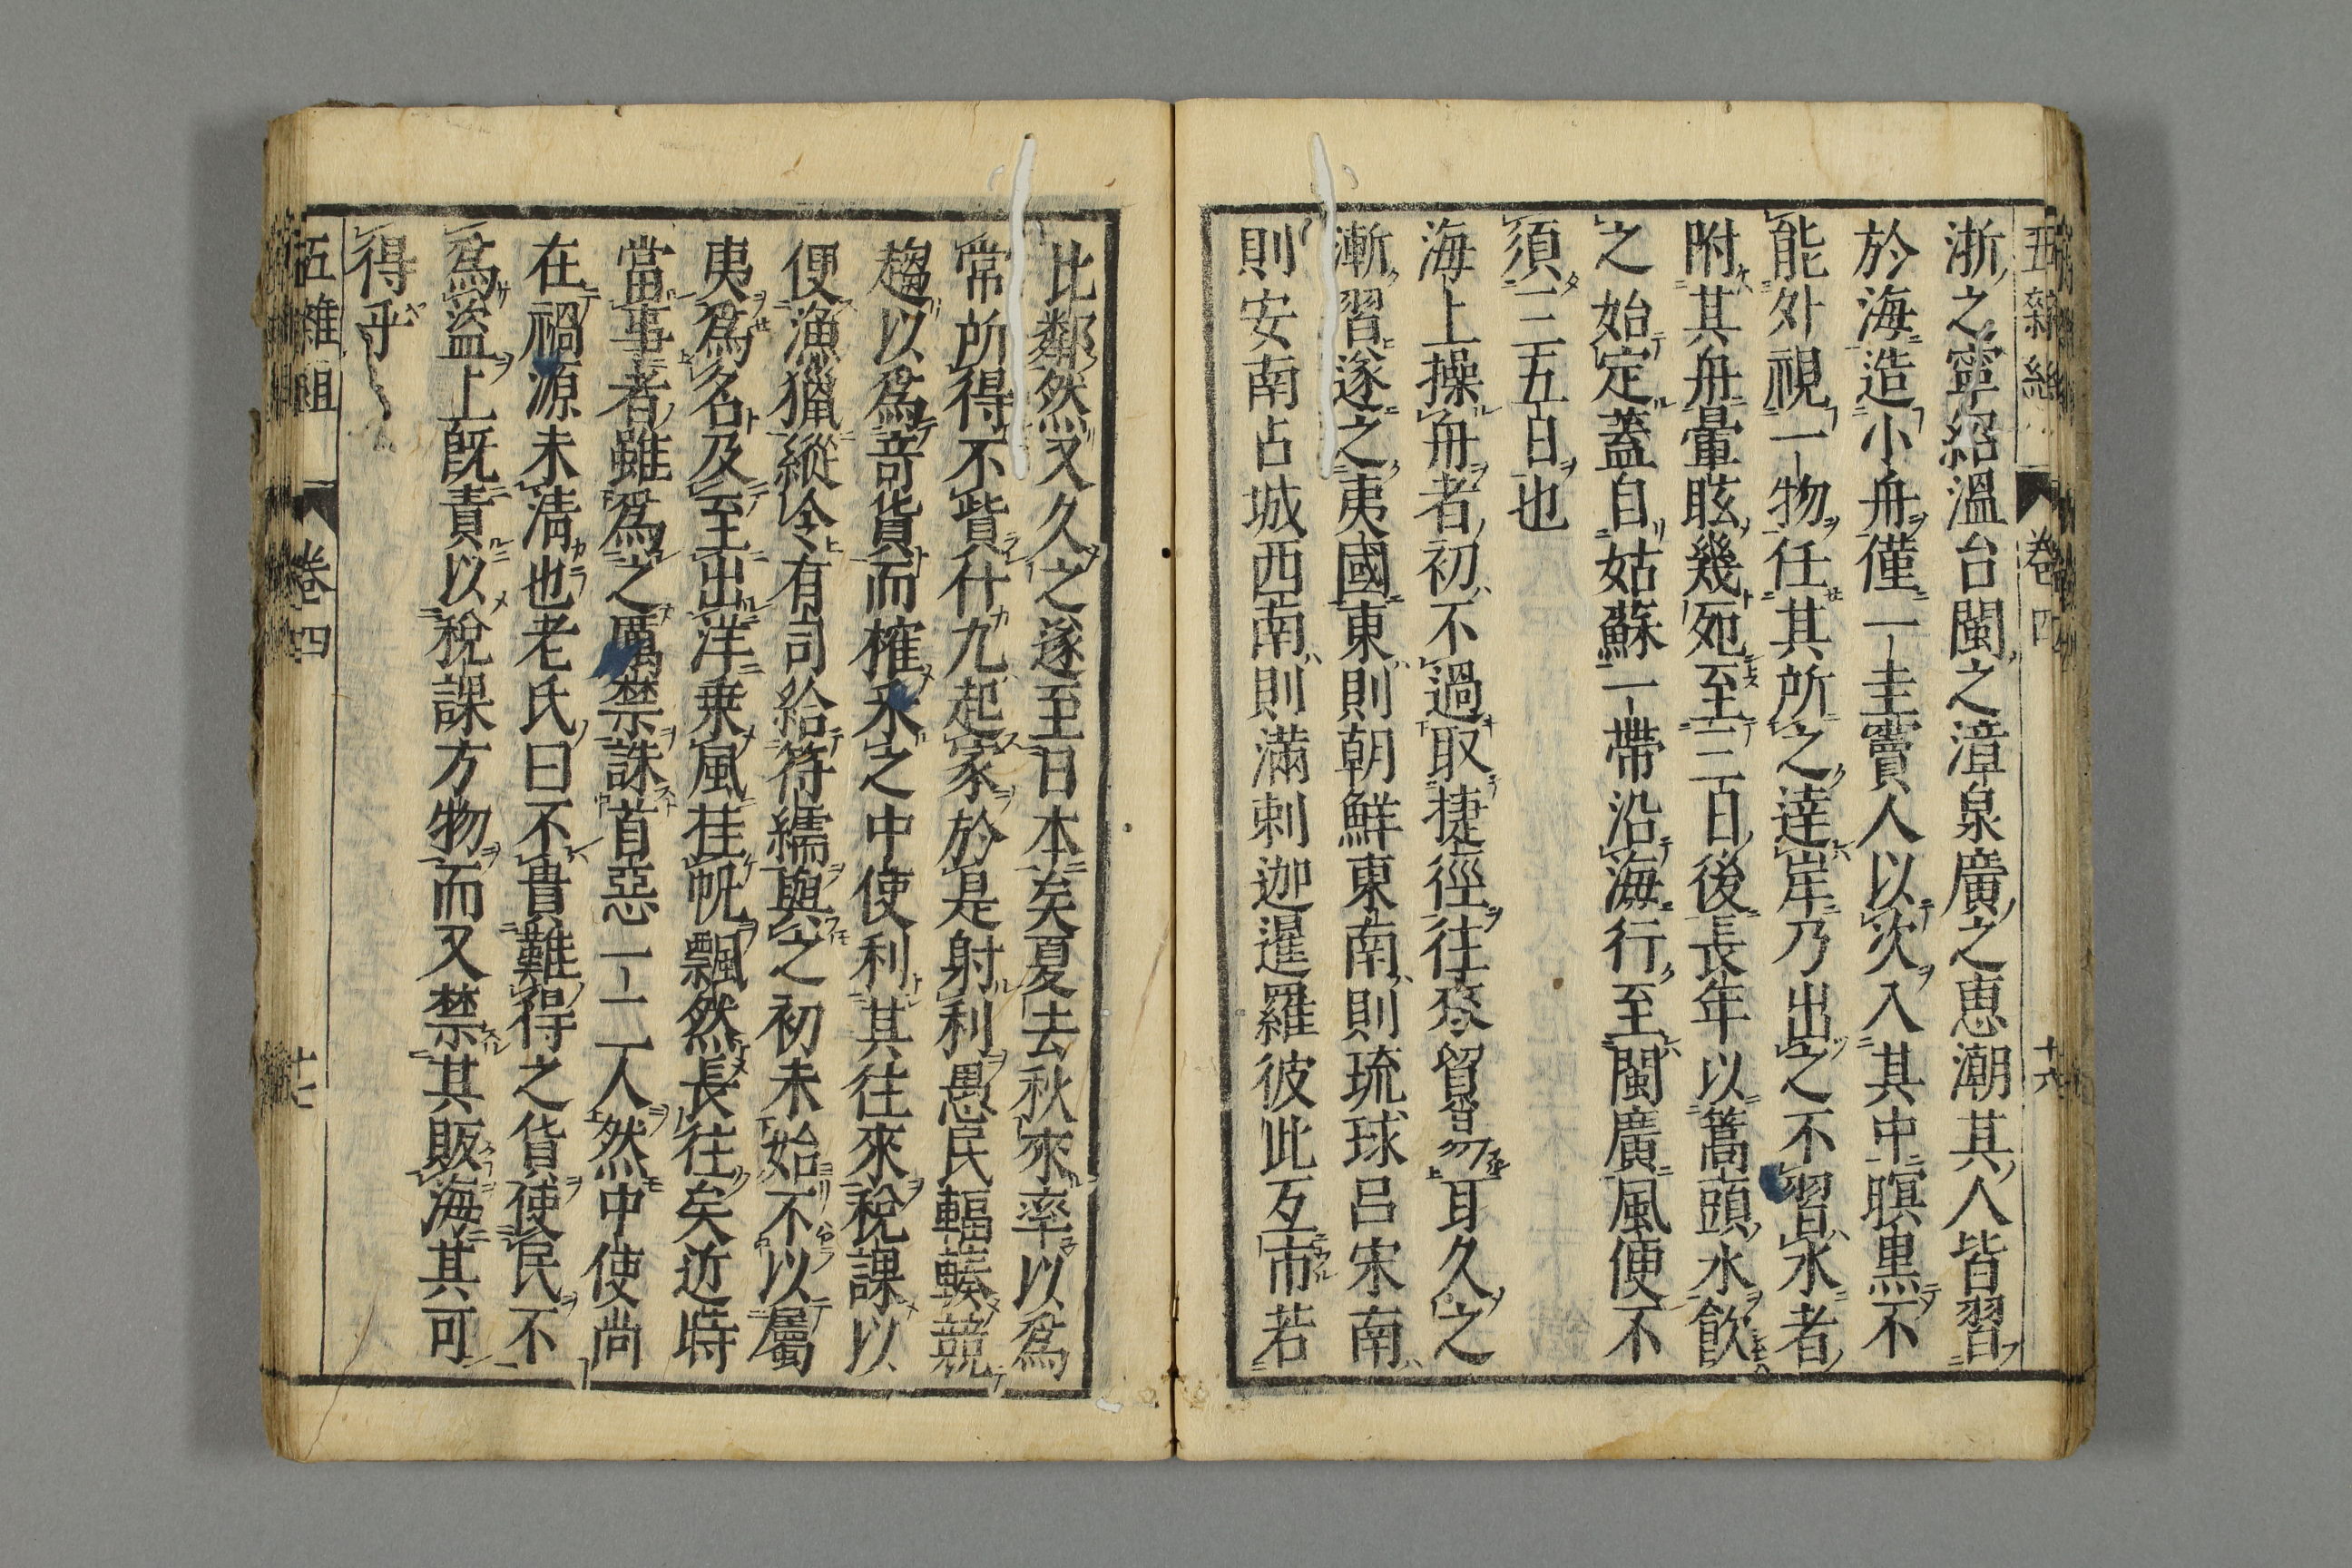 五雜組 卷四 十六
浙之寧紹溫台閩之漳泉廣之惠潮其人皆習
於海造小舟僅一圭竇人以次入其中暝黒不
能外視一物任其所之達岸乃出之不習水者
附其舟暈眩幾死至三日後長年以篙頭水飲
之始定蓋自姑蘇一帶沿海行至閩廣風便不
須三五日也
海上操舟者初不過取捷徑往來貿易耳久之
漸習遂之夷國東則朝鮮東南則琉球呂宋南
則安南占城西南則滿剌迦暹羅彼此互市若
比鄰然又久之遂至日本矣夏去秋來率以爲
常所得不貲什九起家於是射利愚民輻輳競
趨以爲竒貨而榷采之中使利其往來稅課以
便漁獵縱令有司給符繻與之初未始不以屬
夷爲名及至出洋乗風挂帆飄然長往矣近時
當事者雖爲之厲禁誅首惡一二人然中使尚
在禍源未淸也老氏曰不貴難得之貨使民不
爲盜上既責以稅課方物而又禁其販海其可
得乎
五雜組 卷四 十七